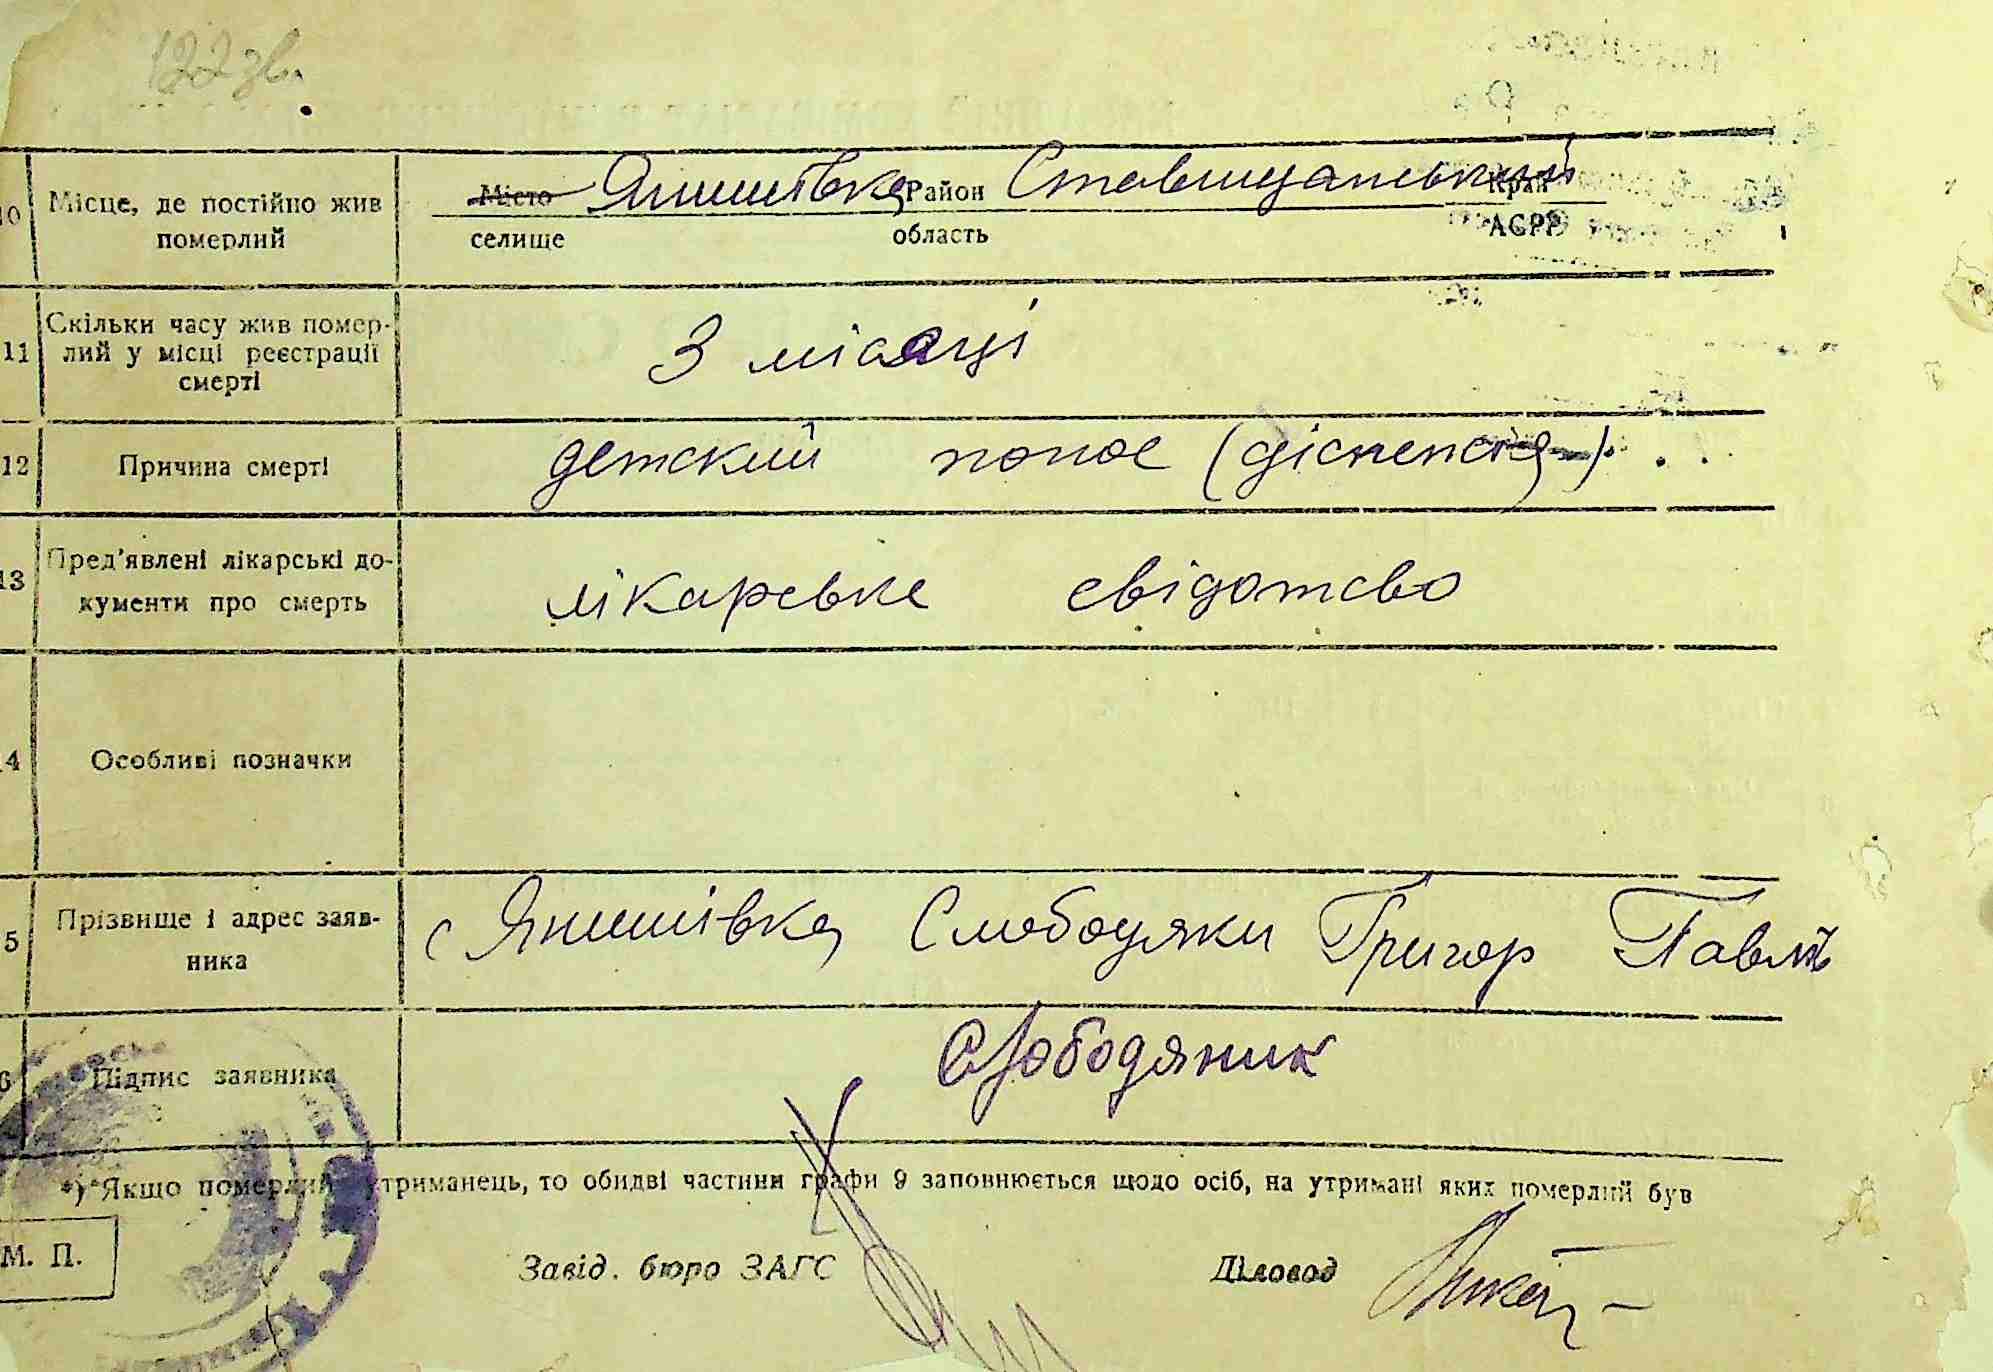 122 зв.
10 Місце, де постійно жив померлий
Місто Янишівка Район Ставищанський Край
селище область АСРР
11 Скільки часу жив помер-
лий у місці реєстрації
смерті
3 місяці
12 Причина смерті
детский понос (діспепсія)
13 Пред'явлені лікарські до-
кументи про смерть
лікарське свідотсво
14 Особливі позначки
15 Прізвище і адрес заяв-
ника
с Янишівка Слободяки Григор Павл
16 Підпис заявника
Слободяник
*) Якщо померлий утриманець, то обидві частини графи 9 заповнюється щодо осіб, на утримані яких померлий був
М. П.
Завід. бюро ЗАГС
Діловод